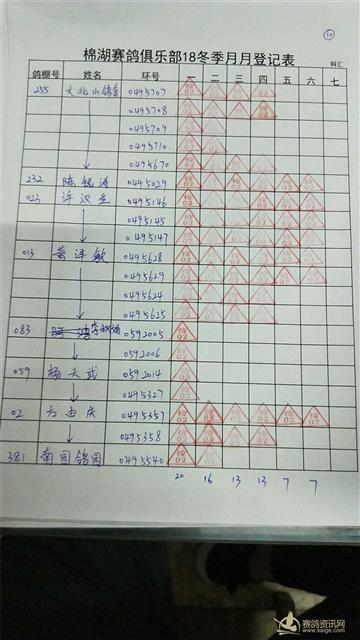 10
棉湖赛鸽俱乐部18冬季月月登记表
科汇
鸽棚号 姓名 环号 一 二 三 四 五 六 七
255 大北山鸽舍 0495707
0495708
0495709
0495710
0495670
232 陈锐涛 0495029
023 许汉 0495146
0495145
0495147
013 黄泽敏 0495628
0495629
0495624
0495625
083 0592005
0592006
059 杨天武 0592014
0495327
02 方由庆 0495357
0495358
381 南园鸽园 0495540
20 16 13 13 7 7
赛鸽资讯网
www.saige.com